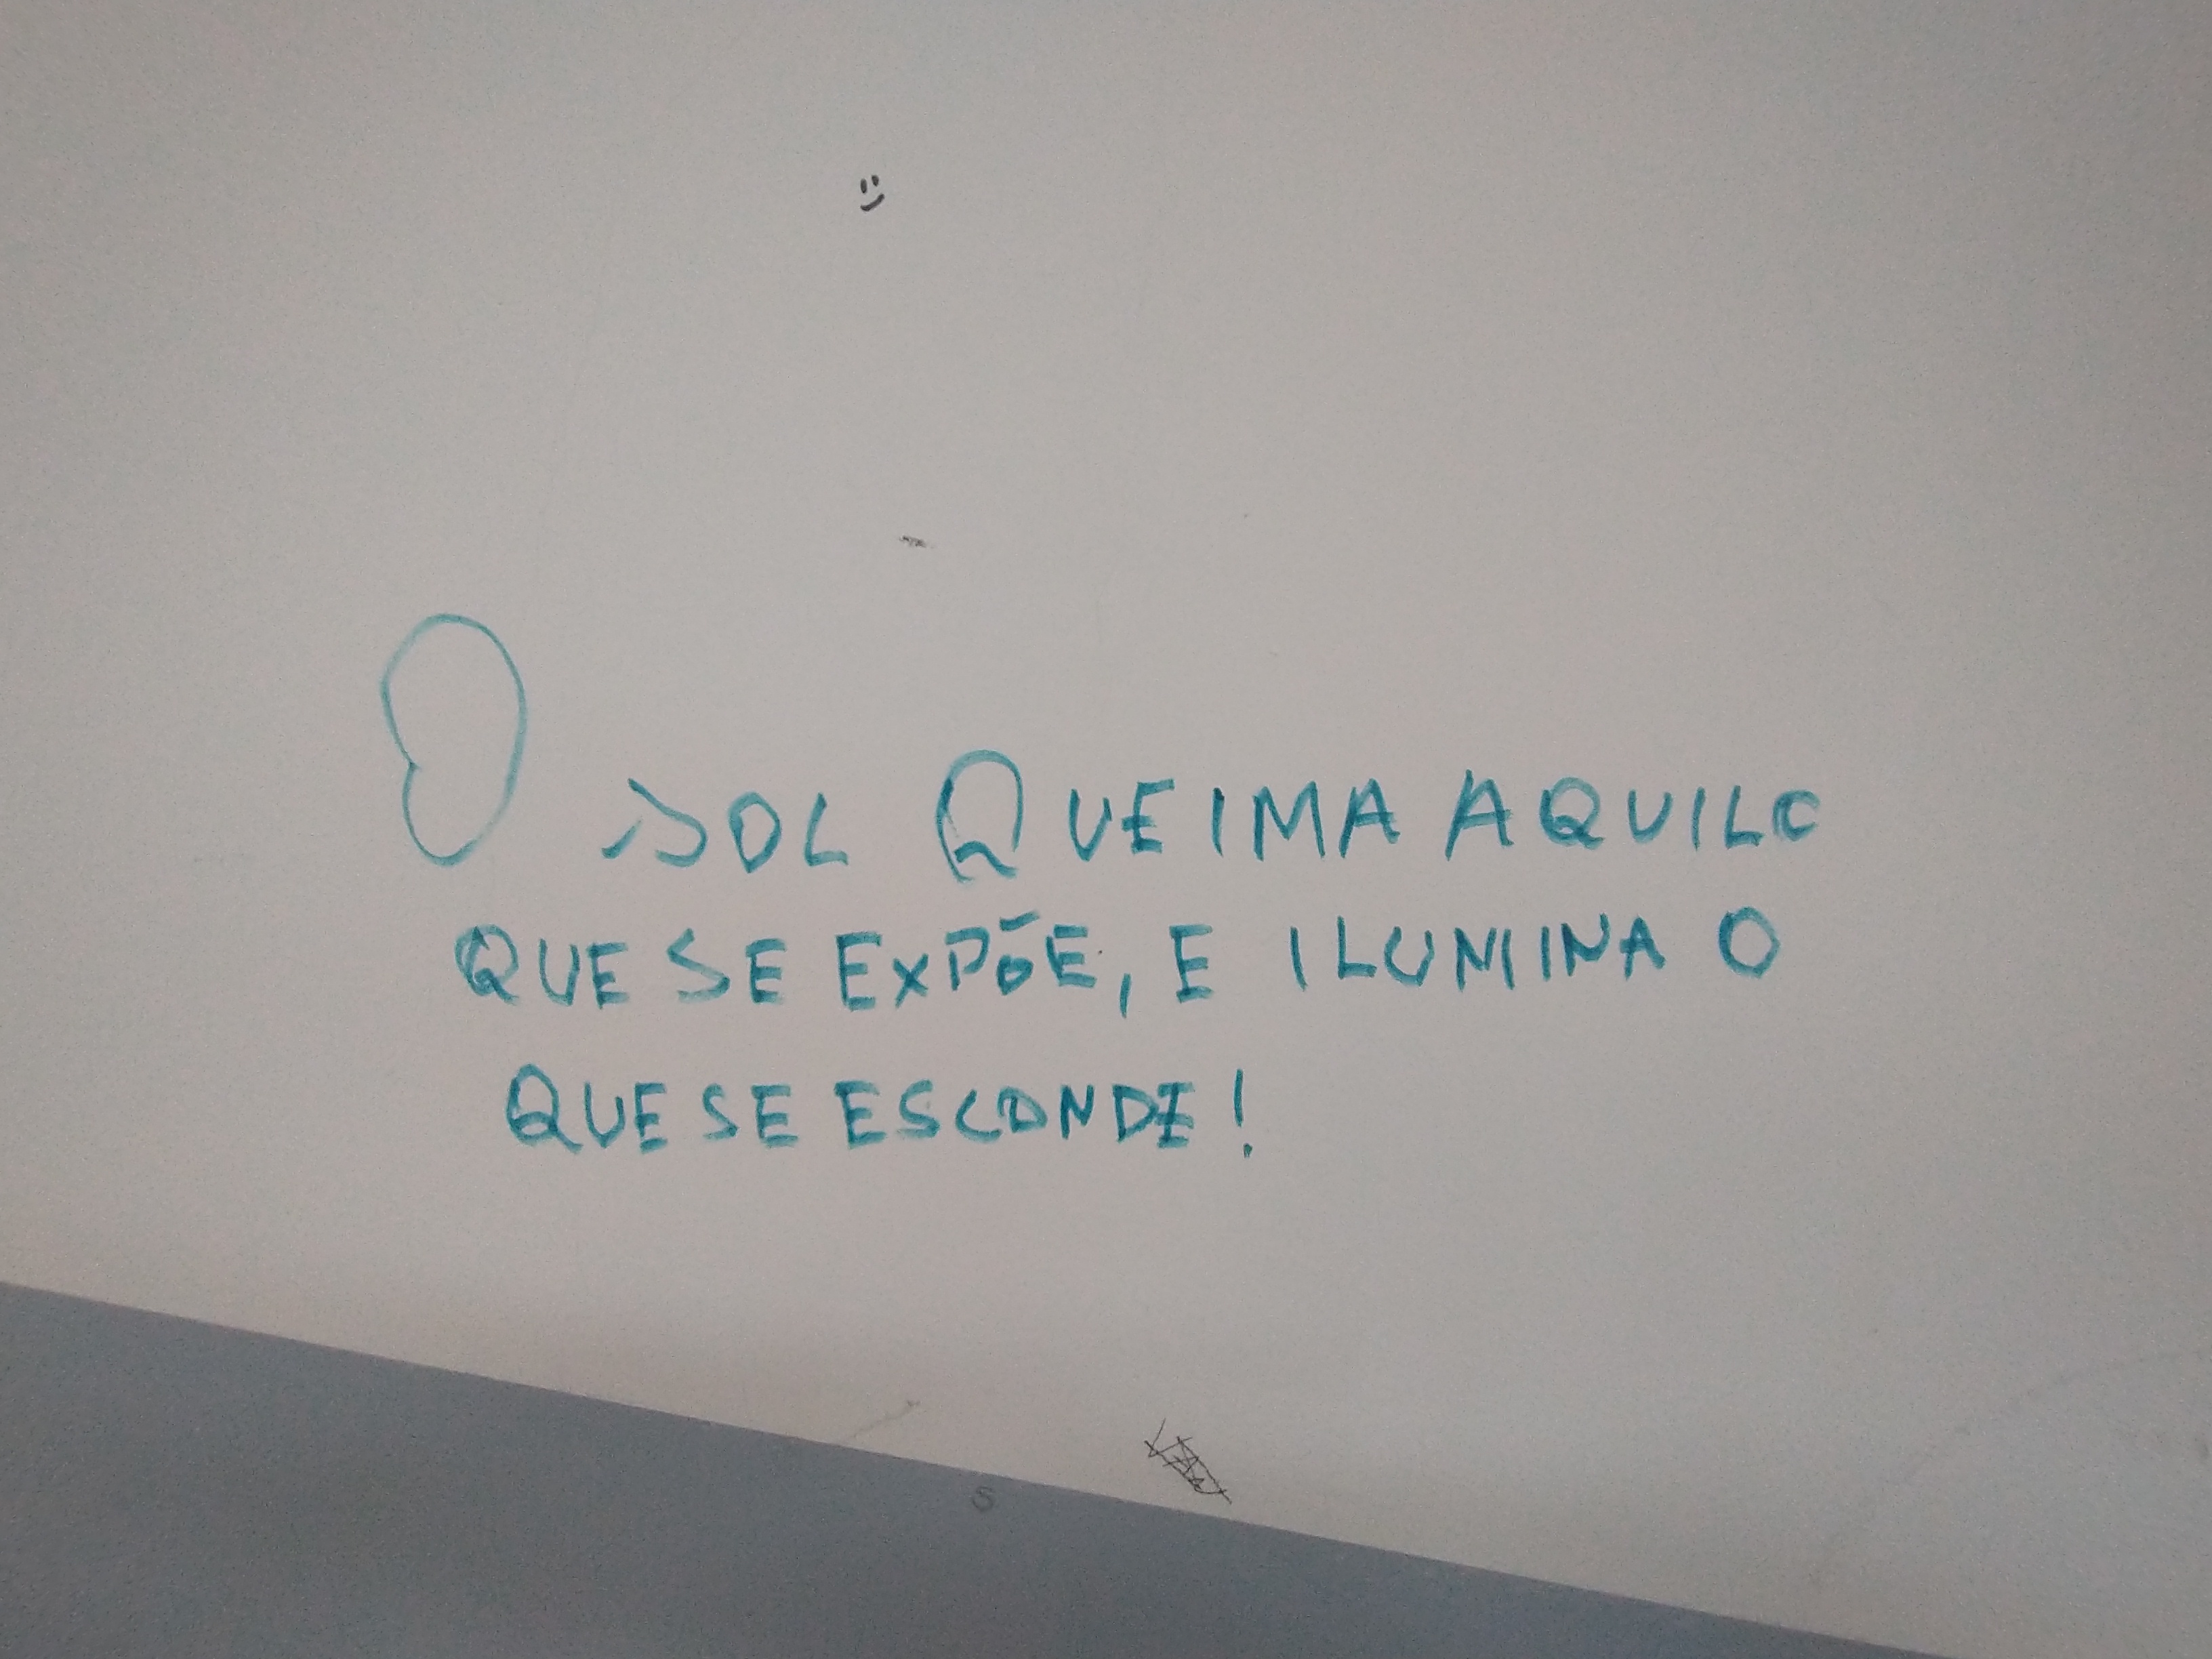 O SOL QUEIMA AQUILO
QUE SE EXPÕE, E ILUMINA O
QUE SE ESCONDE!
S